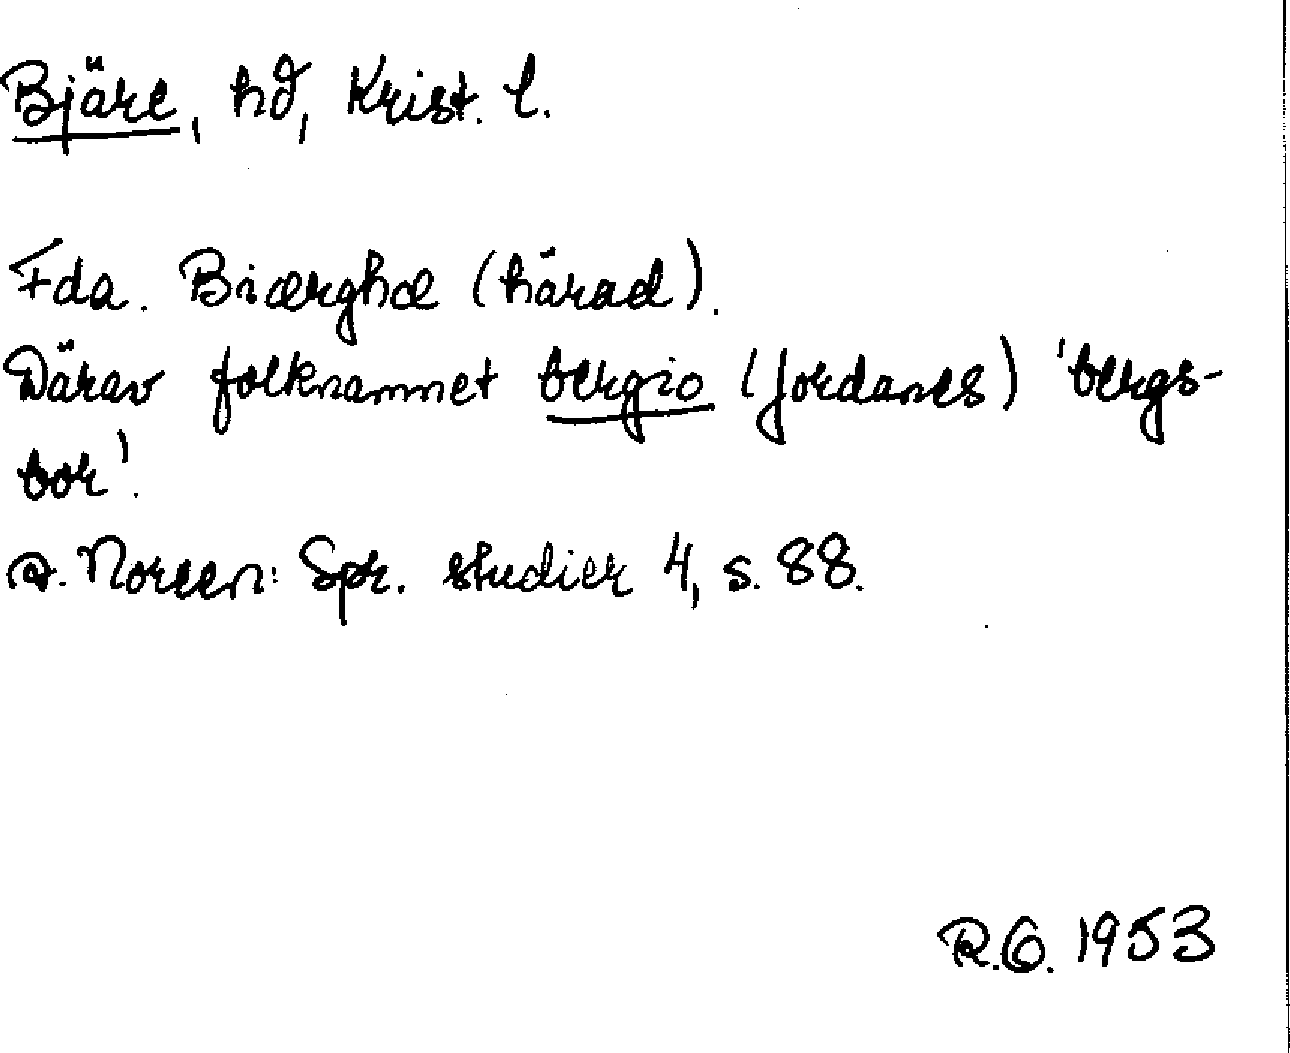 Bjäre, hd, Krist. l.
Fda. Biærghæ (härad).
Därav folknamnet bergio (Jordanes) 'bergs-
bor'.
A. Noreen: Spr. studier 4, s. 88.
R.G. 1953